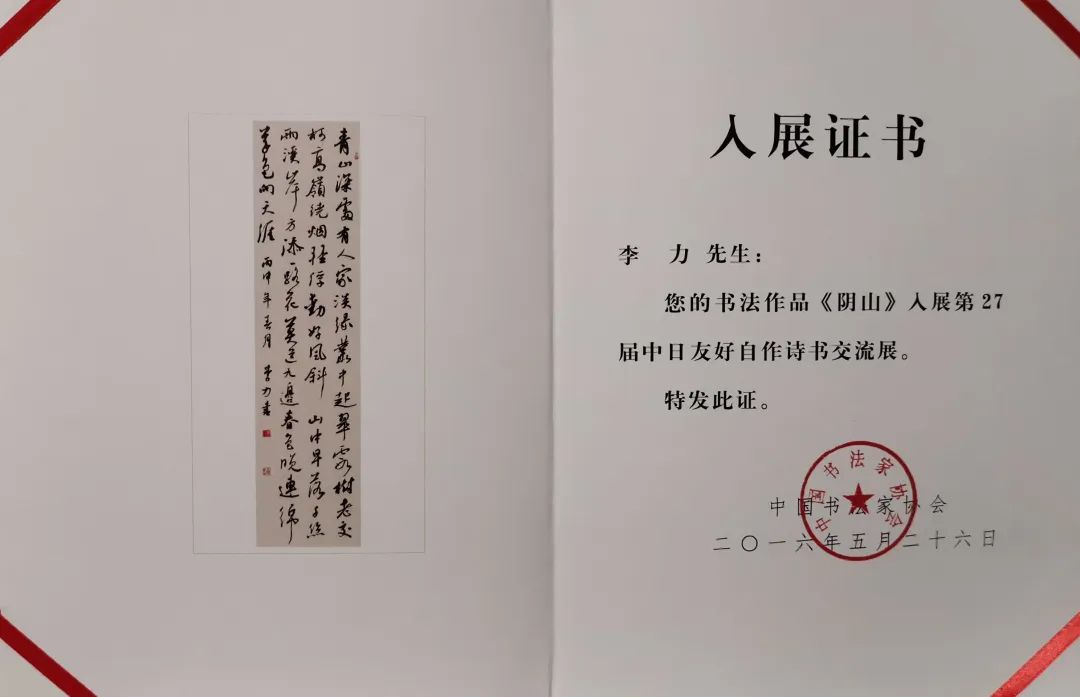 青山深處有人家淡綠叢中起翠霞樹老交
柯高嶺繞烟輕浮動好風斜 山中早落千絲
雨溪岸方添一路花莫道九邊春色晚連綿
草色 天涯 丙申年春月 李力書
入展证书
李 力 先生：
您的书法作品《阴山》入展第27
届中日友好自作诗书交流展。
特发此证。
中国书法家协会
二〇一六年五月二十六日
中国书法家协会